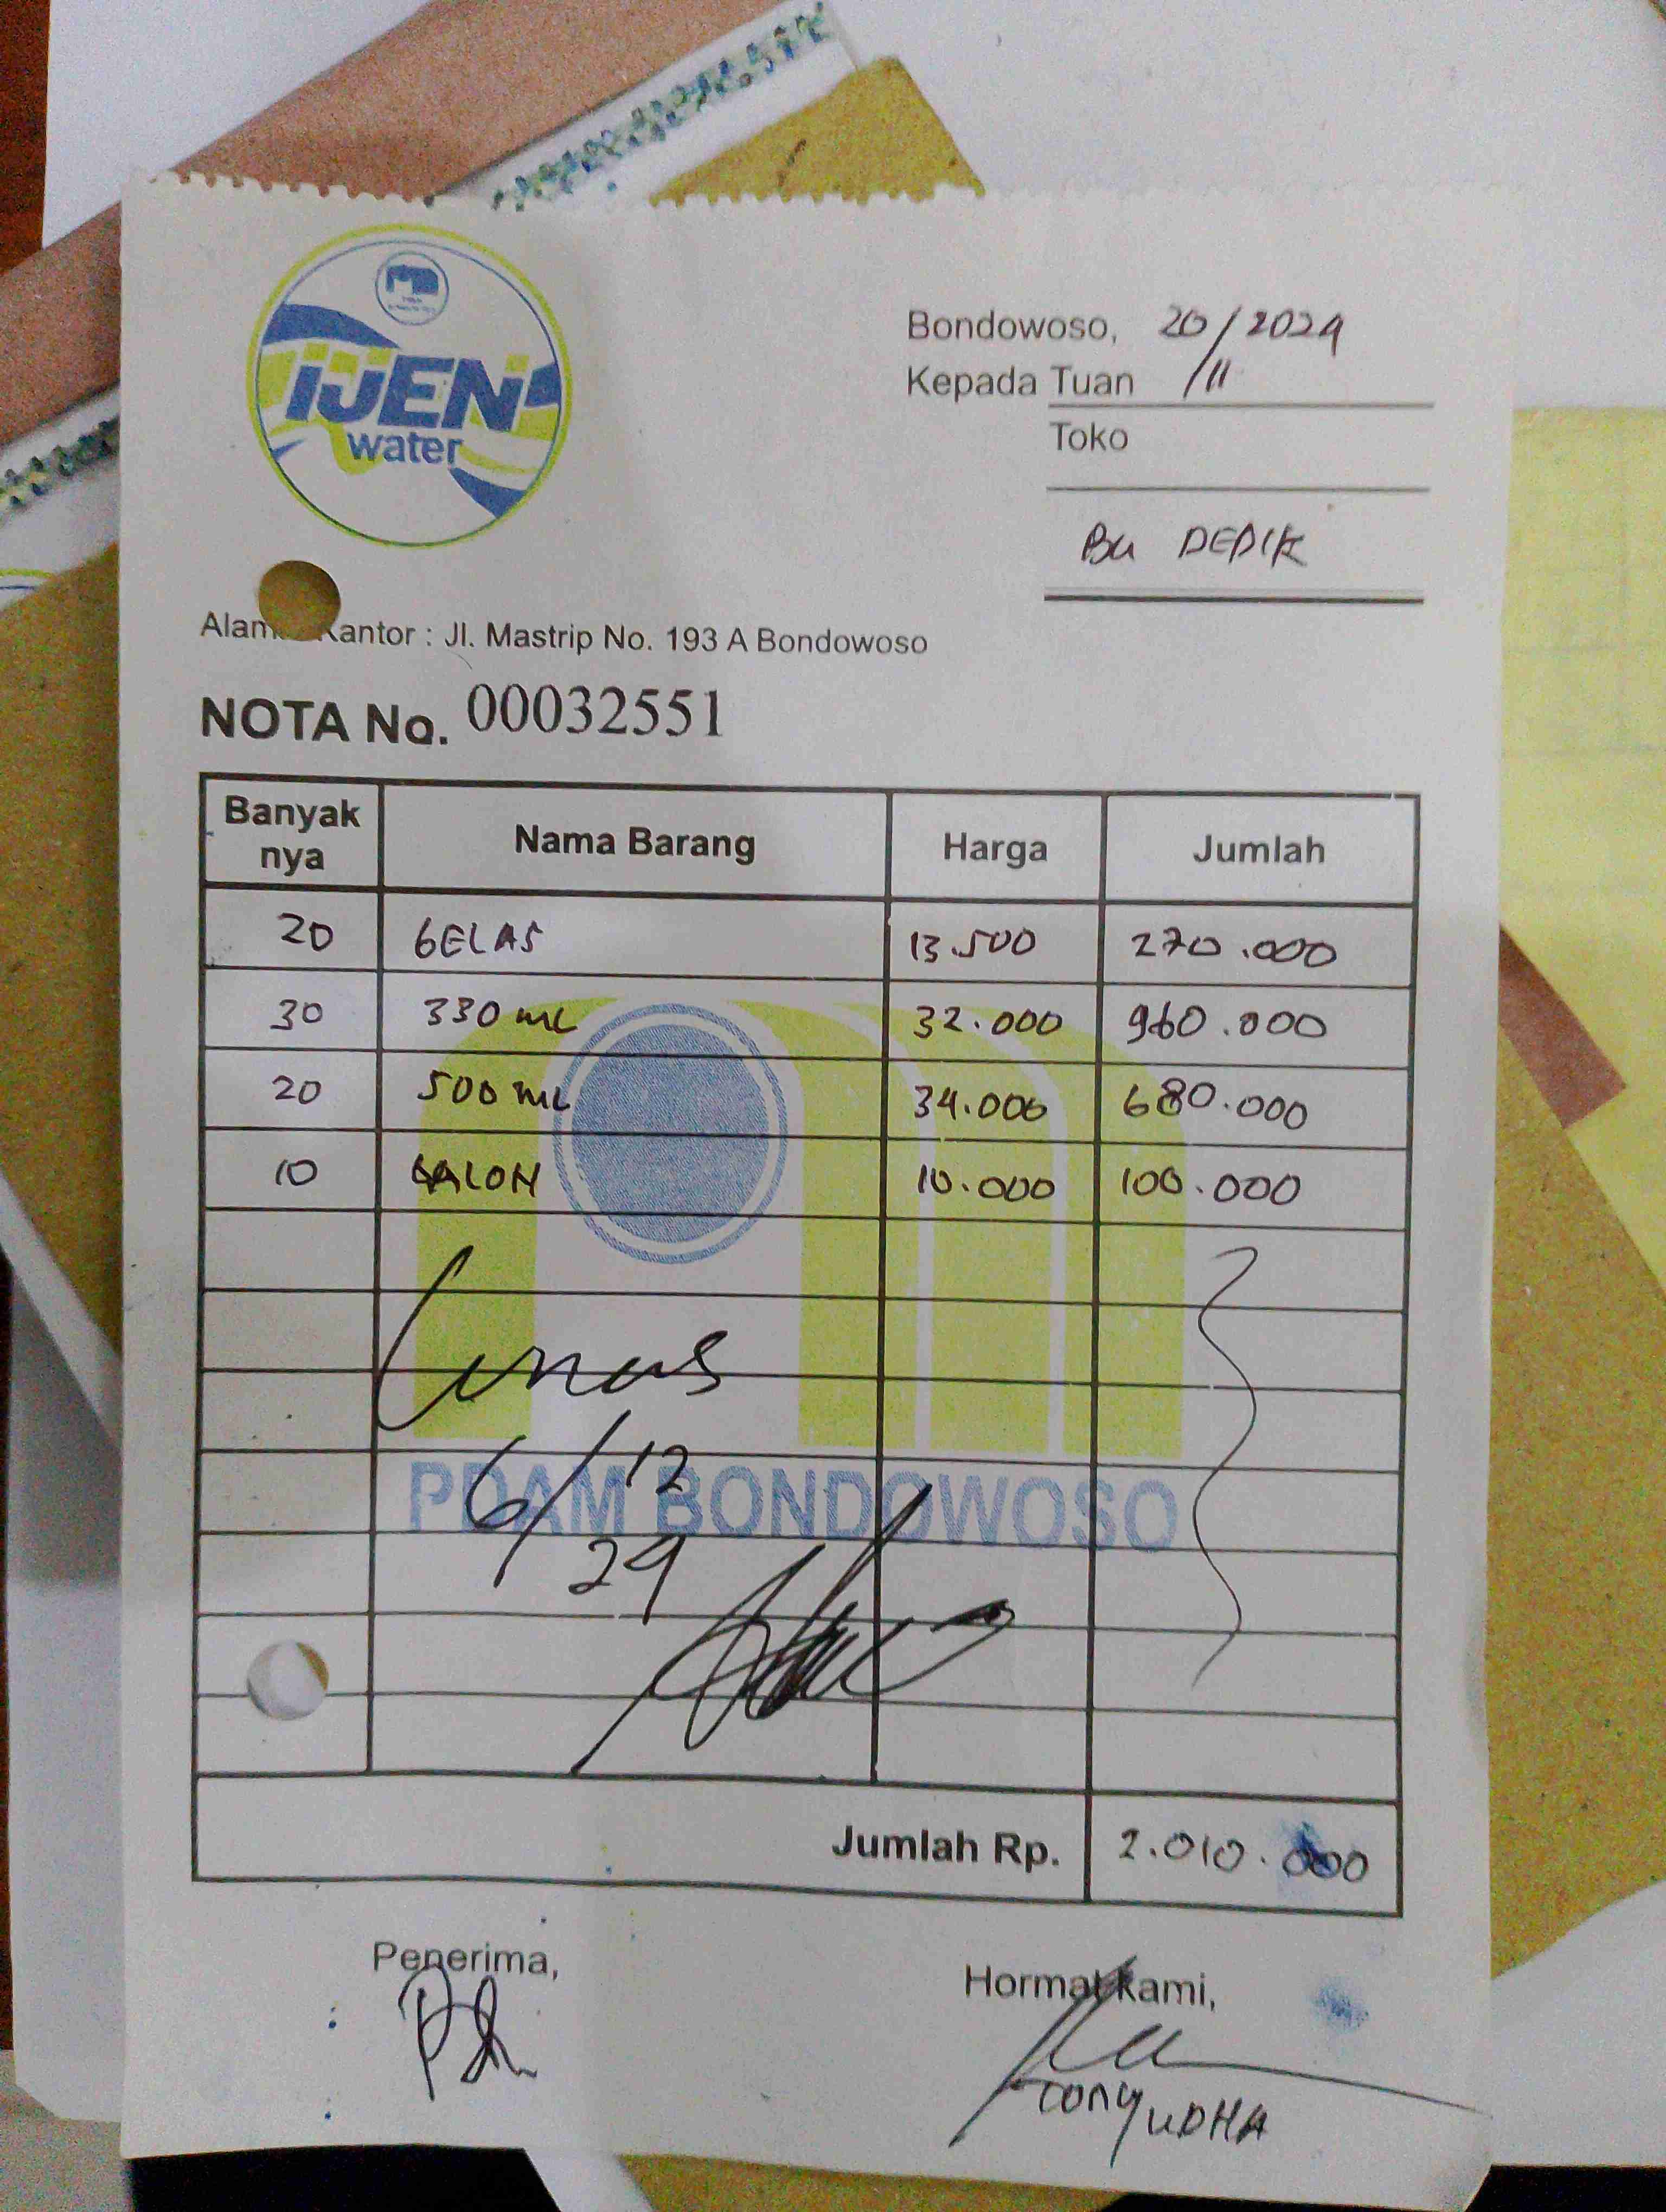 IJEN
water
Bondowoso, 20/11/2024
Kepada Tuan
Toko
Bu DEDIK
Kantor : Jl. Mastrip No. 193 A Bondowoso
NOTA No. 00032551
Banyak nya Nama Barang Harga Jumlah
20 GELAS 13.500 270.000
30 330 mL 32.000 960.000
20 500 mL 34.000 680.000
10 GALON 10.000 100.000
Lunas
6/12
24
PDAM BONDOWOSO
Jumlah Rp. 2.010.000
Penerima,
Hormat kami,